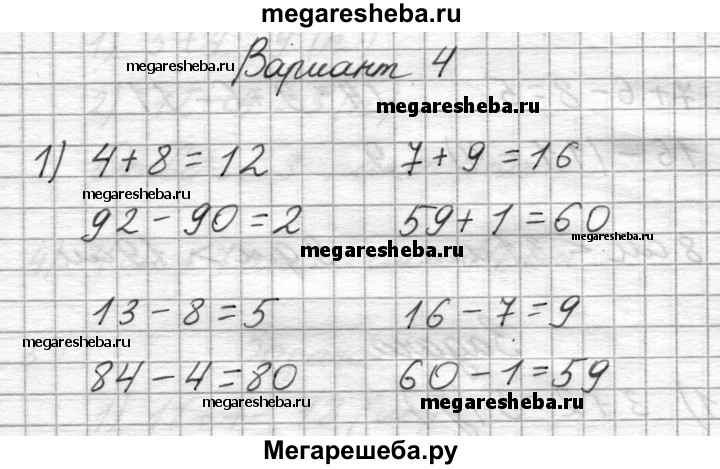 megaresheba.ru
megaresheba.ru Вариант 4
megaresheba.ru
1) 4+8=12 7+9=16
megaresheba.ru
92-90=2 59+1=60
megaresheba.ru megaresheba.ru
13-8=5 16-7=9
megaresheba.ru
84-4=80 60-1=59
megaresheba.ru megaresheba.ru
Мегарешеба.ру